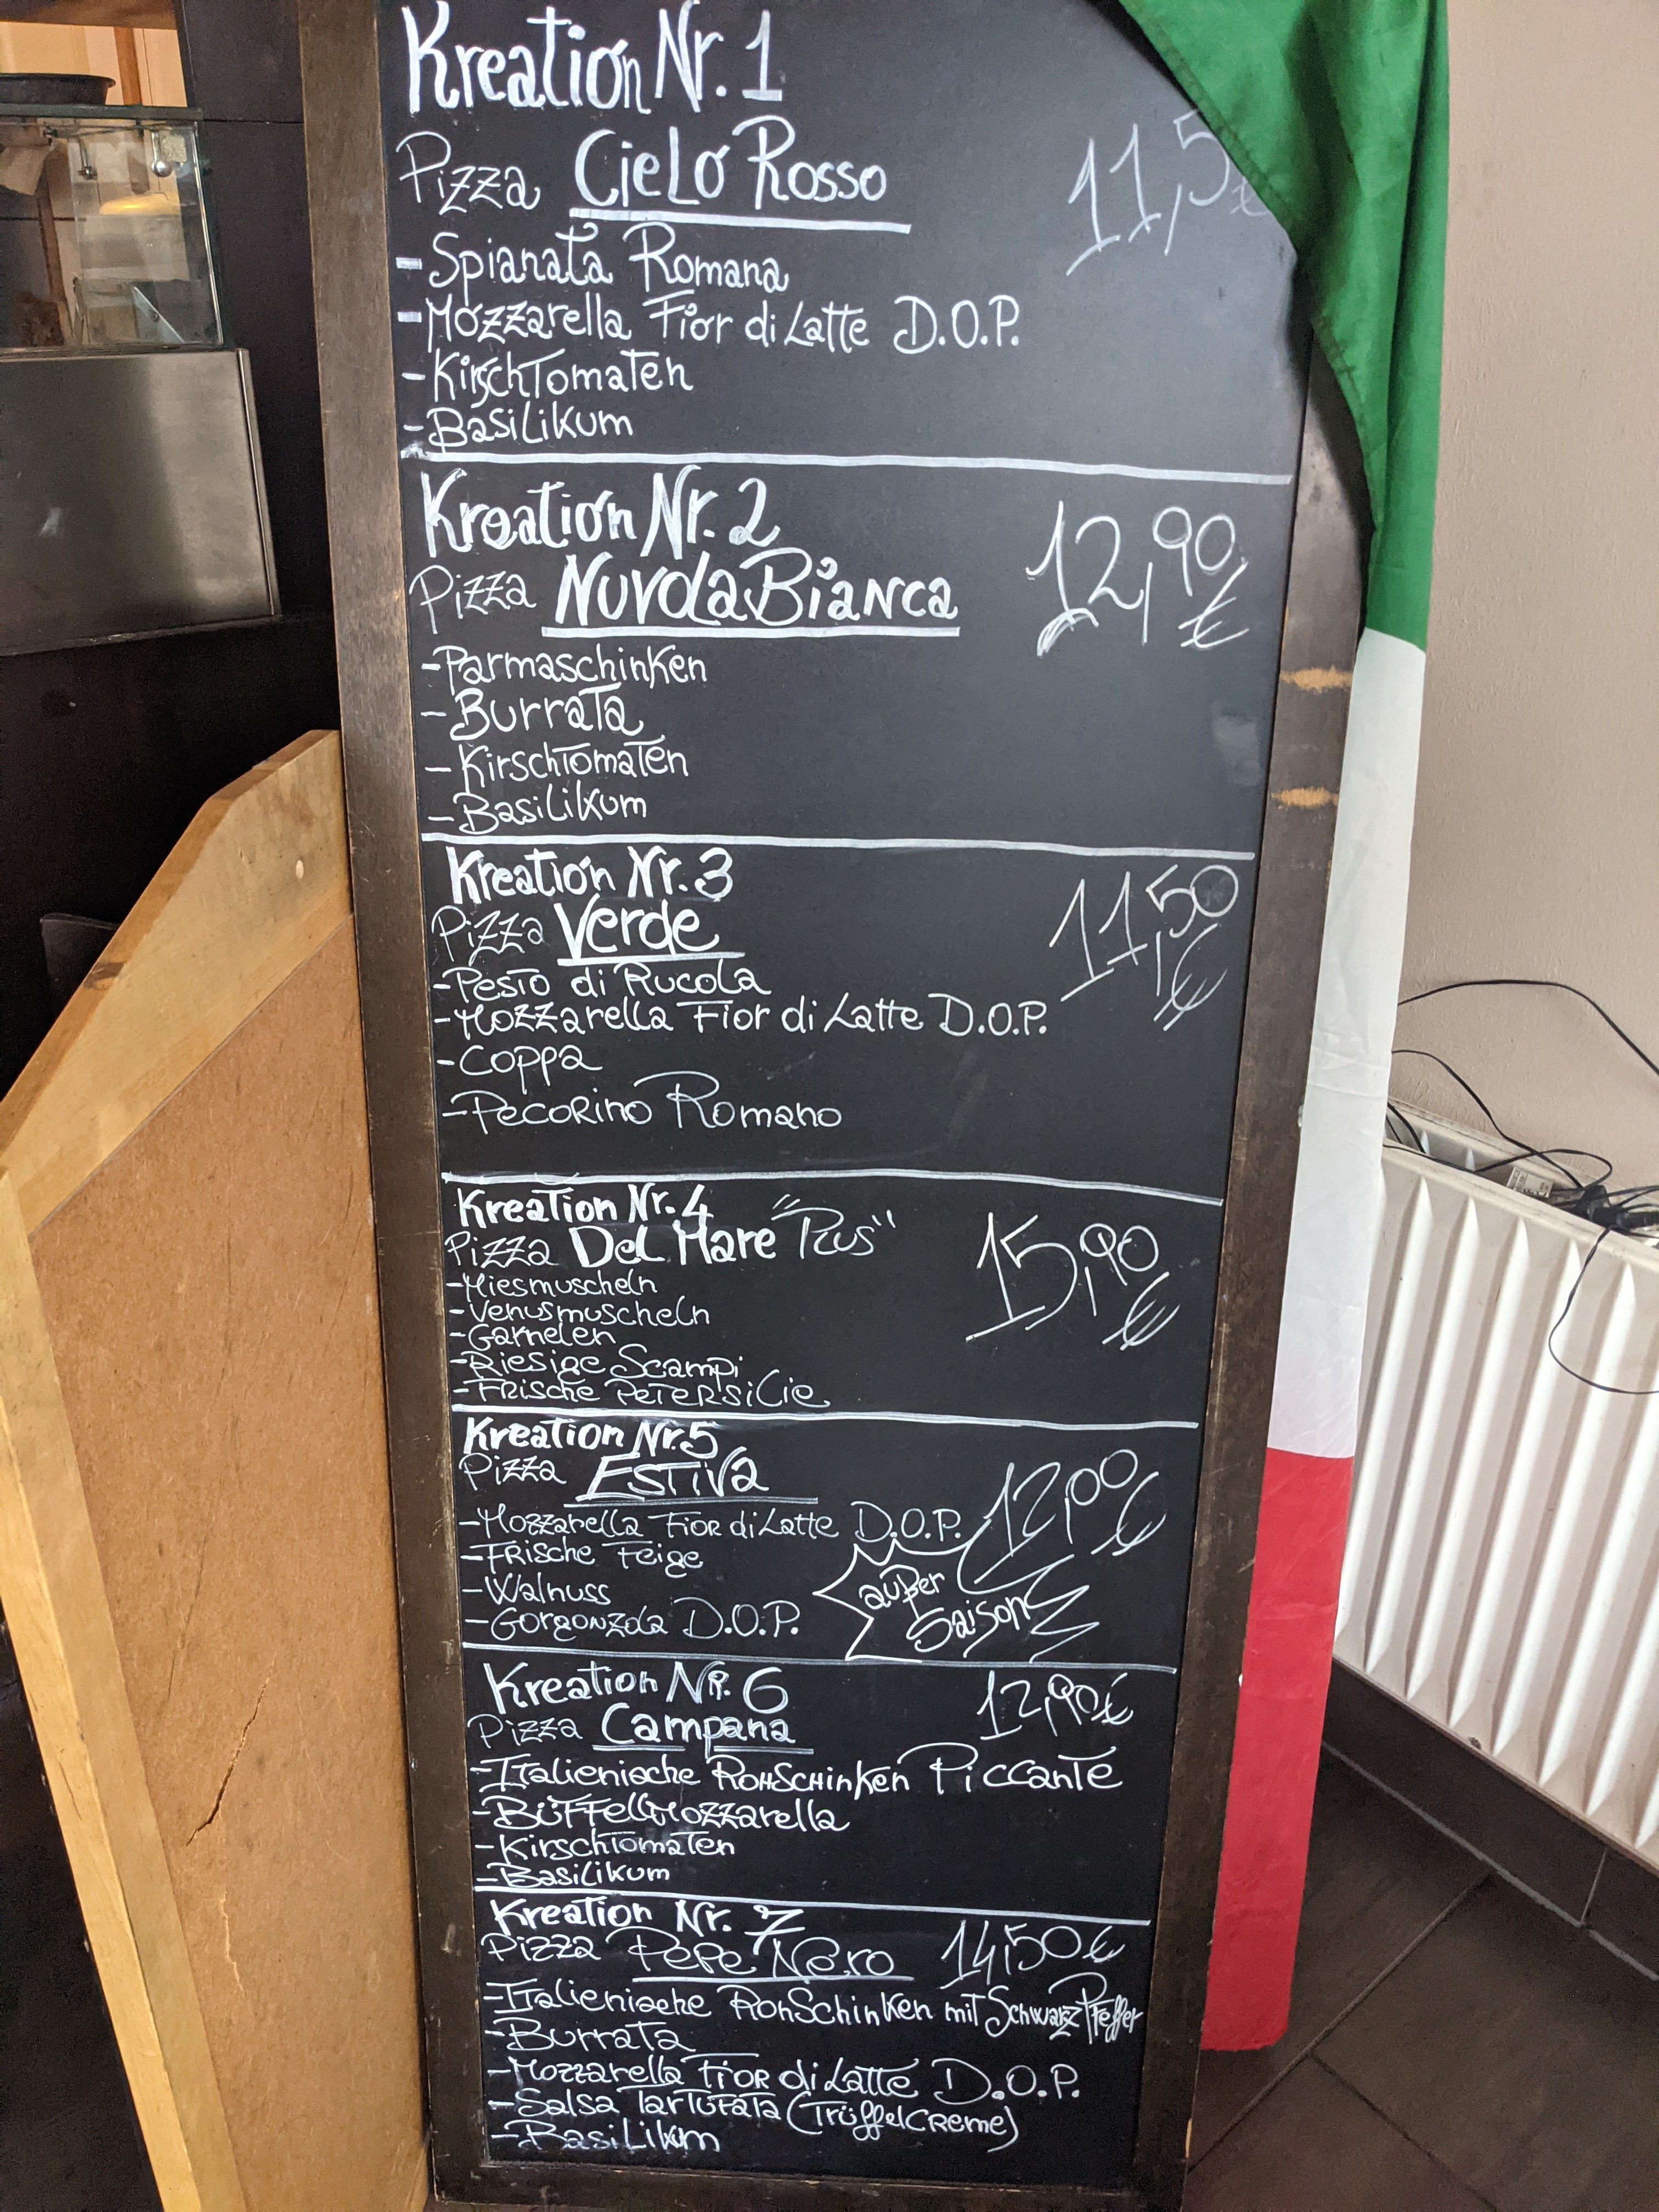 Kreation Nr. 1
Pizza Cielo Rosso 11,5 €
- Spianata Romana
- Mozzarella Fior di Latte D.O.P.
- Kirschtomaten
- Basilikum
Kreation Nr. 2
Pizza Nuvola Bianca 12,90 €
- Parmaschinken
- Burrata
- Kirschtomaten
- Basilikum
Kreation Nr. 3
Pizza Verde 11,50 €
- Pesto di Rucola
- Mozzarella Fior di Latte D.O.P.
- Coppa
- Pecorino Romano
Kreation Nr. 4
Pizza Del Mare "Plus" 15,90 €
- Miesmuscheln
- Venusmuscheln
- Garnelen
- Riesige Scampi
- Frische Petersilie
Kreation Nr. 5
Pizza Estiva 12,00 €
- Mozzarella Fior di Latte D.O.P.
- Frische Feige
- Walnuss
- Gorgonzola D.O.P.
außer
Saison
Kreation Nr. 6 12,90 €
Pizza Campana
- Italienische Rohschinken Piccante
- Büffelmozzarella
- Kirschtomaten
- Basilikum
Kreation Nr. 7
Pizza Pepe Nero 14,50 €
- Italienische Rohschinken mit Schwarz Pfeffer
- Burrata
- Mozzarella Fior di Latte D.O.P.
- Salsa Tartufata (Trüffelcreme)
- Basilikum